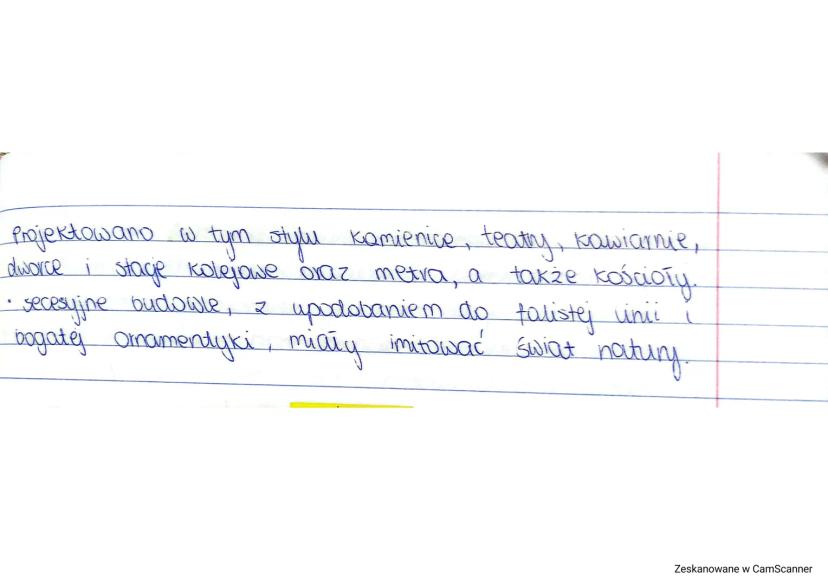 Projektowano w tym stylu kamienice, teatry, kawiarnie,
dworce i stacje kolejowe oraz metra, a także kościoły.
• secesyjne budowle, z upodobaniem do falistej linii i
bogatej ornamendyki, miały imitować świat natury.
Zeskanowane w CamScanner